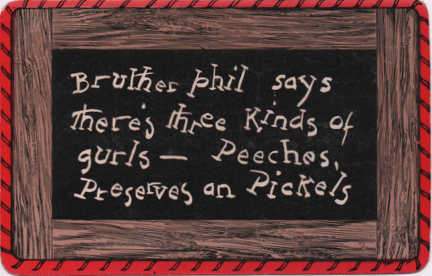 Bruther phil says
there's three Kinds of
gurls— Peeches,
Preserves an Pickels